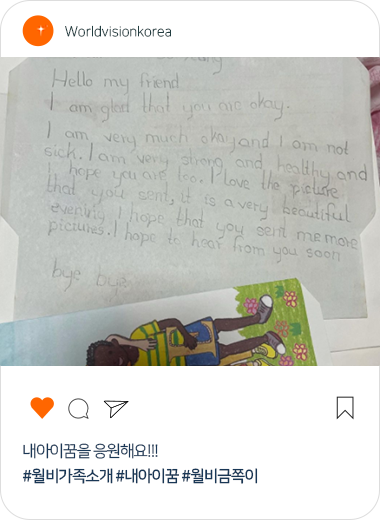 Worldvisionkorea
Hello my friend
I am glad that you are okay.
I am very much okay and I am not
sick. I am very strong and healthy and
I hope you are too. I love the picture
that you sent, it is a very beautiful
evening I hope that you sent me more
pictures. I hope to hear from you soon
bye bye
내아이꿈을 응원해요!!!
#월비가족소개 #내아이꿈 #월비금쪽이